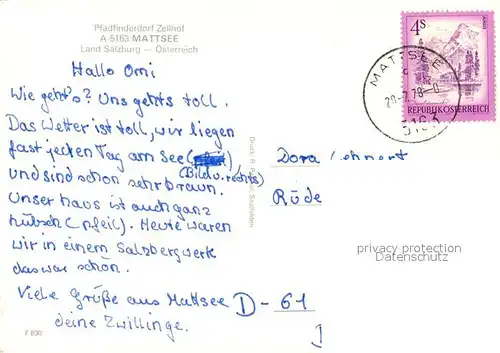 Pfadfinderdorf Zellhof
A-5163 MATTSEE
Land Salzburg — Österreich
Hallo Omi
Wie geht's? Uns gehts toll.
Das Wetter ist toll, wir liegen
fast jeden Tag am See (
und sind schon sehr braun. (Bild u. rechts)
Unser Haus ist auch ganz
hübsch (Pfeil). Heute waren
wir in einem Salzbergwerk
das war schön.
Viele Grüße aus Mattsee
deine Zwillinge.
F 830
Druck
4s
REPUBLIK ÖSTERREICH
MATTSEE
5163
Dora Lehnert
Rüde
D-61
privacy protection
Datenschutz